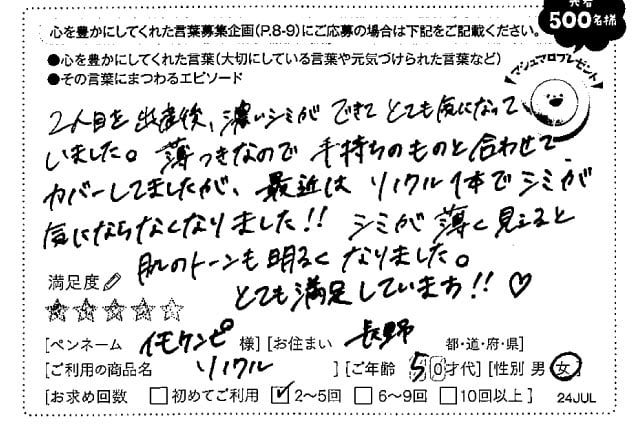 先着
500名様
マシュマロプレゼント
心を豊かにしてくれた言葉募集企画(P.8-9)にご応募の場合は下記をご記載ください。
●心を豊かにしてくれた言葉(大切にしている言葉や元気づけられた言葉など)
●その言葉にまつわるエピソード
2人目を出産後、濃いシミができて とても気になって
いました。薄つきなので 手持ちのものと合わせて
カバーしてましたが、最近は リノクル1本でシミが
気にならなくなりました!! シミが薄く見えると
肌のトーンも明るくなりました。
とても満足しています!! ♡
満足度
☆☆☆☆☆
[ペンネーム イモケンピ 様] [お住まい 長野 都・道・府・県]
[ご利用の商品名 リノクル ] [ご年齢 50才代] [性別 男 女]
[お求め回数 □初めてご利用 ☑2~5回 □6~9回 □10回以上] 24JUL